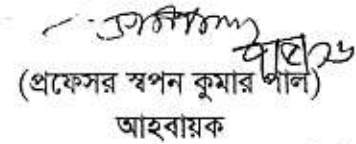 (প্রফেসর স্বপন কুমার পাল)
আহবায়ক